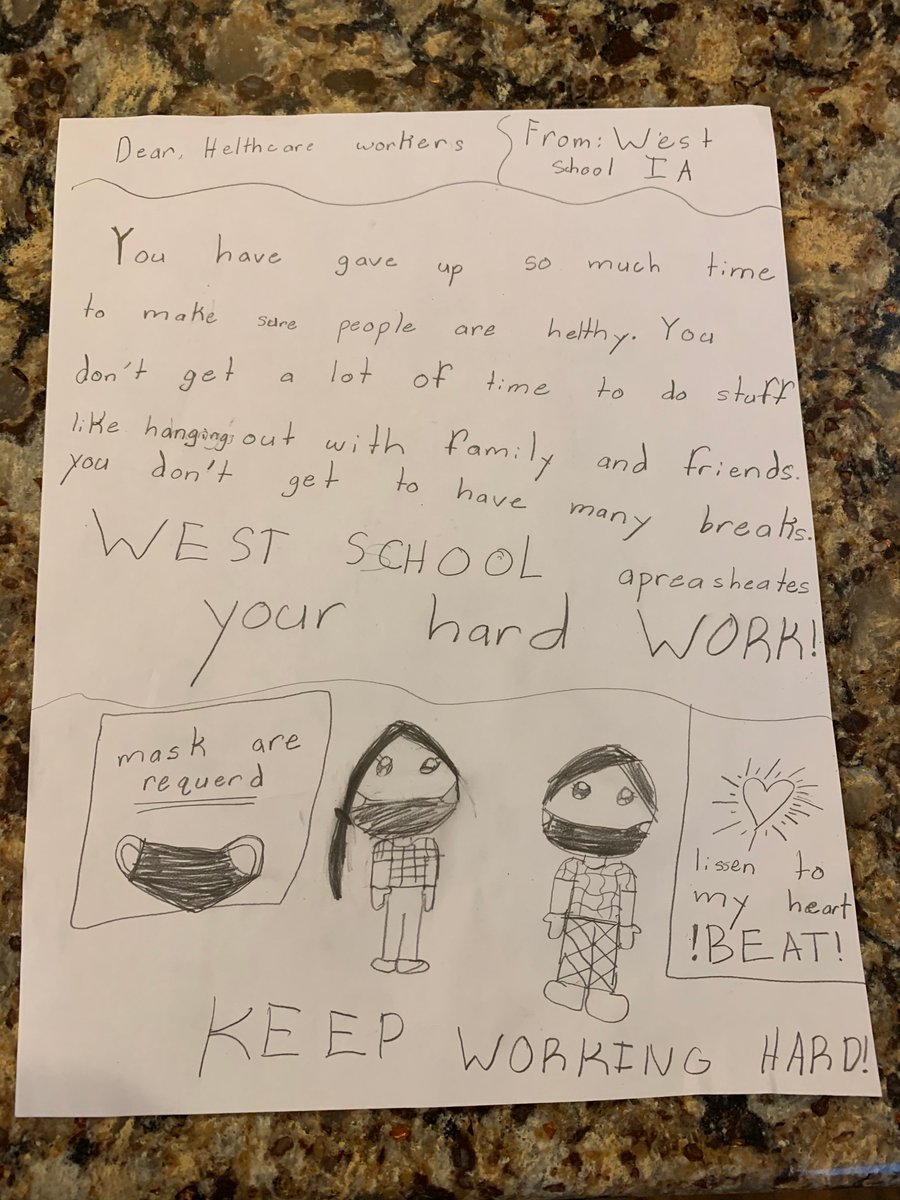 Dear, Helthcare workers
From: West
school IA
You have gave up so much time
to make sure people are helthy. You
don't get a lot of time to do stuff
like hanging out with family and friends.
you don't get to have many breaks.
WEST SCHOOL apreasheates
your hard WORK!
mask are
requerd
lissen to
my heart
!BEAT!
KEEP WORKING HARD!